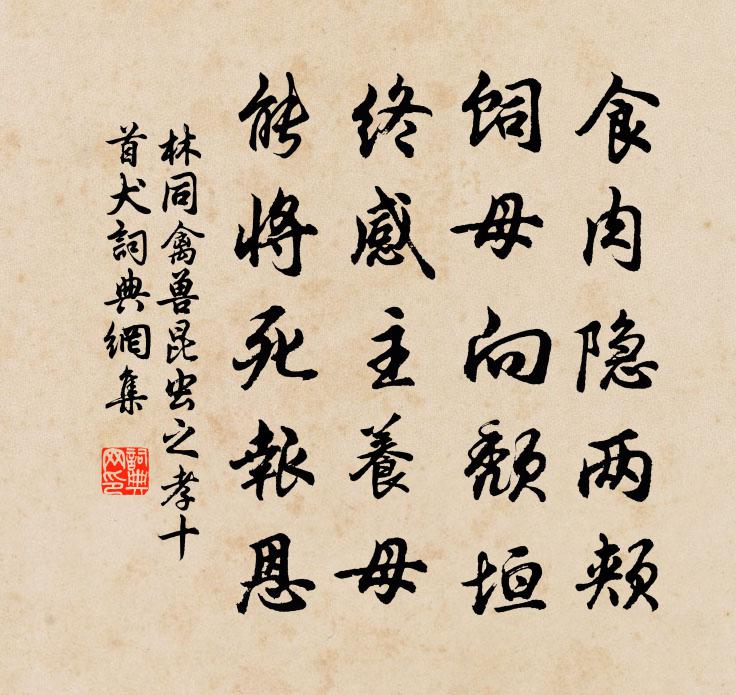 食肉隐两颊
饲母向颓垣
终感主養母
能将死報恩
林同禽兽昆虫之孝十
首犬詞典網集
詞典
网印